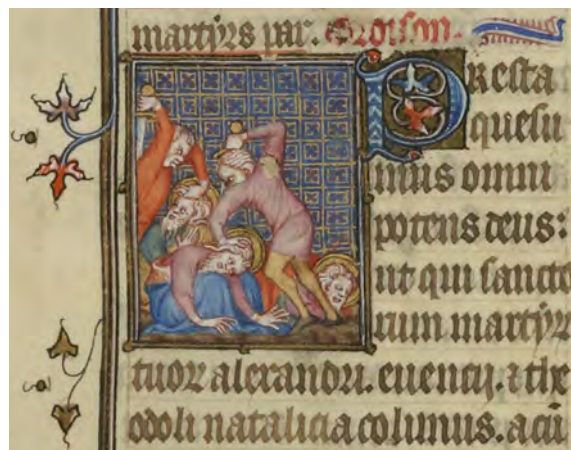 martyrs par. Oroison.
Presta
quesu
mus omni
potens deus:
ut qui sancto
rum martyr
tuor alexandri. euencij. ⁊ the
odoli natalicia colimus. a cu